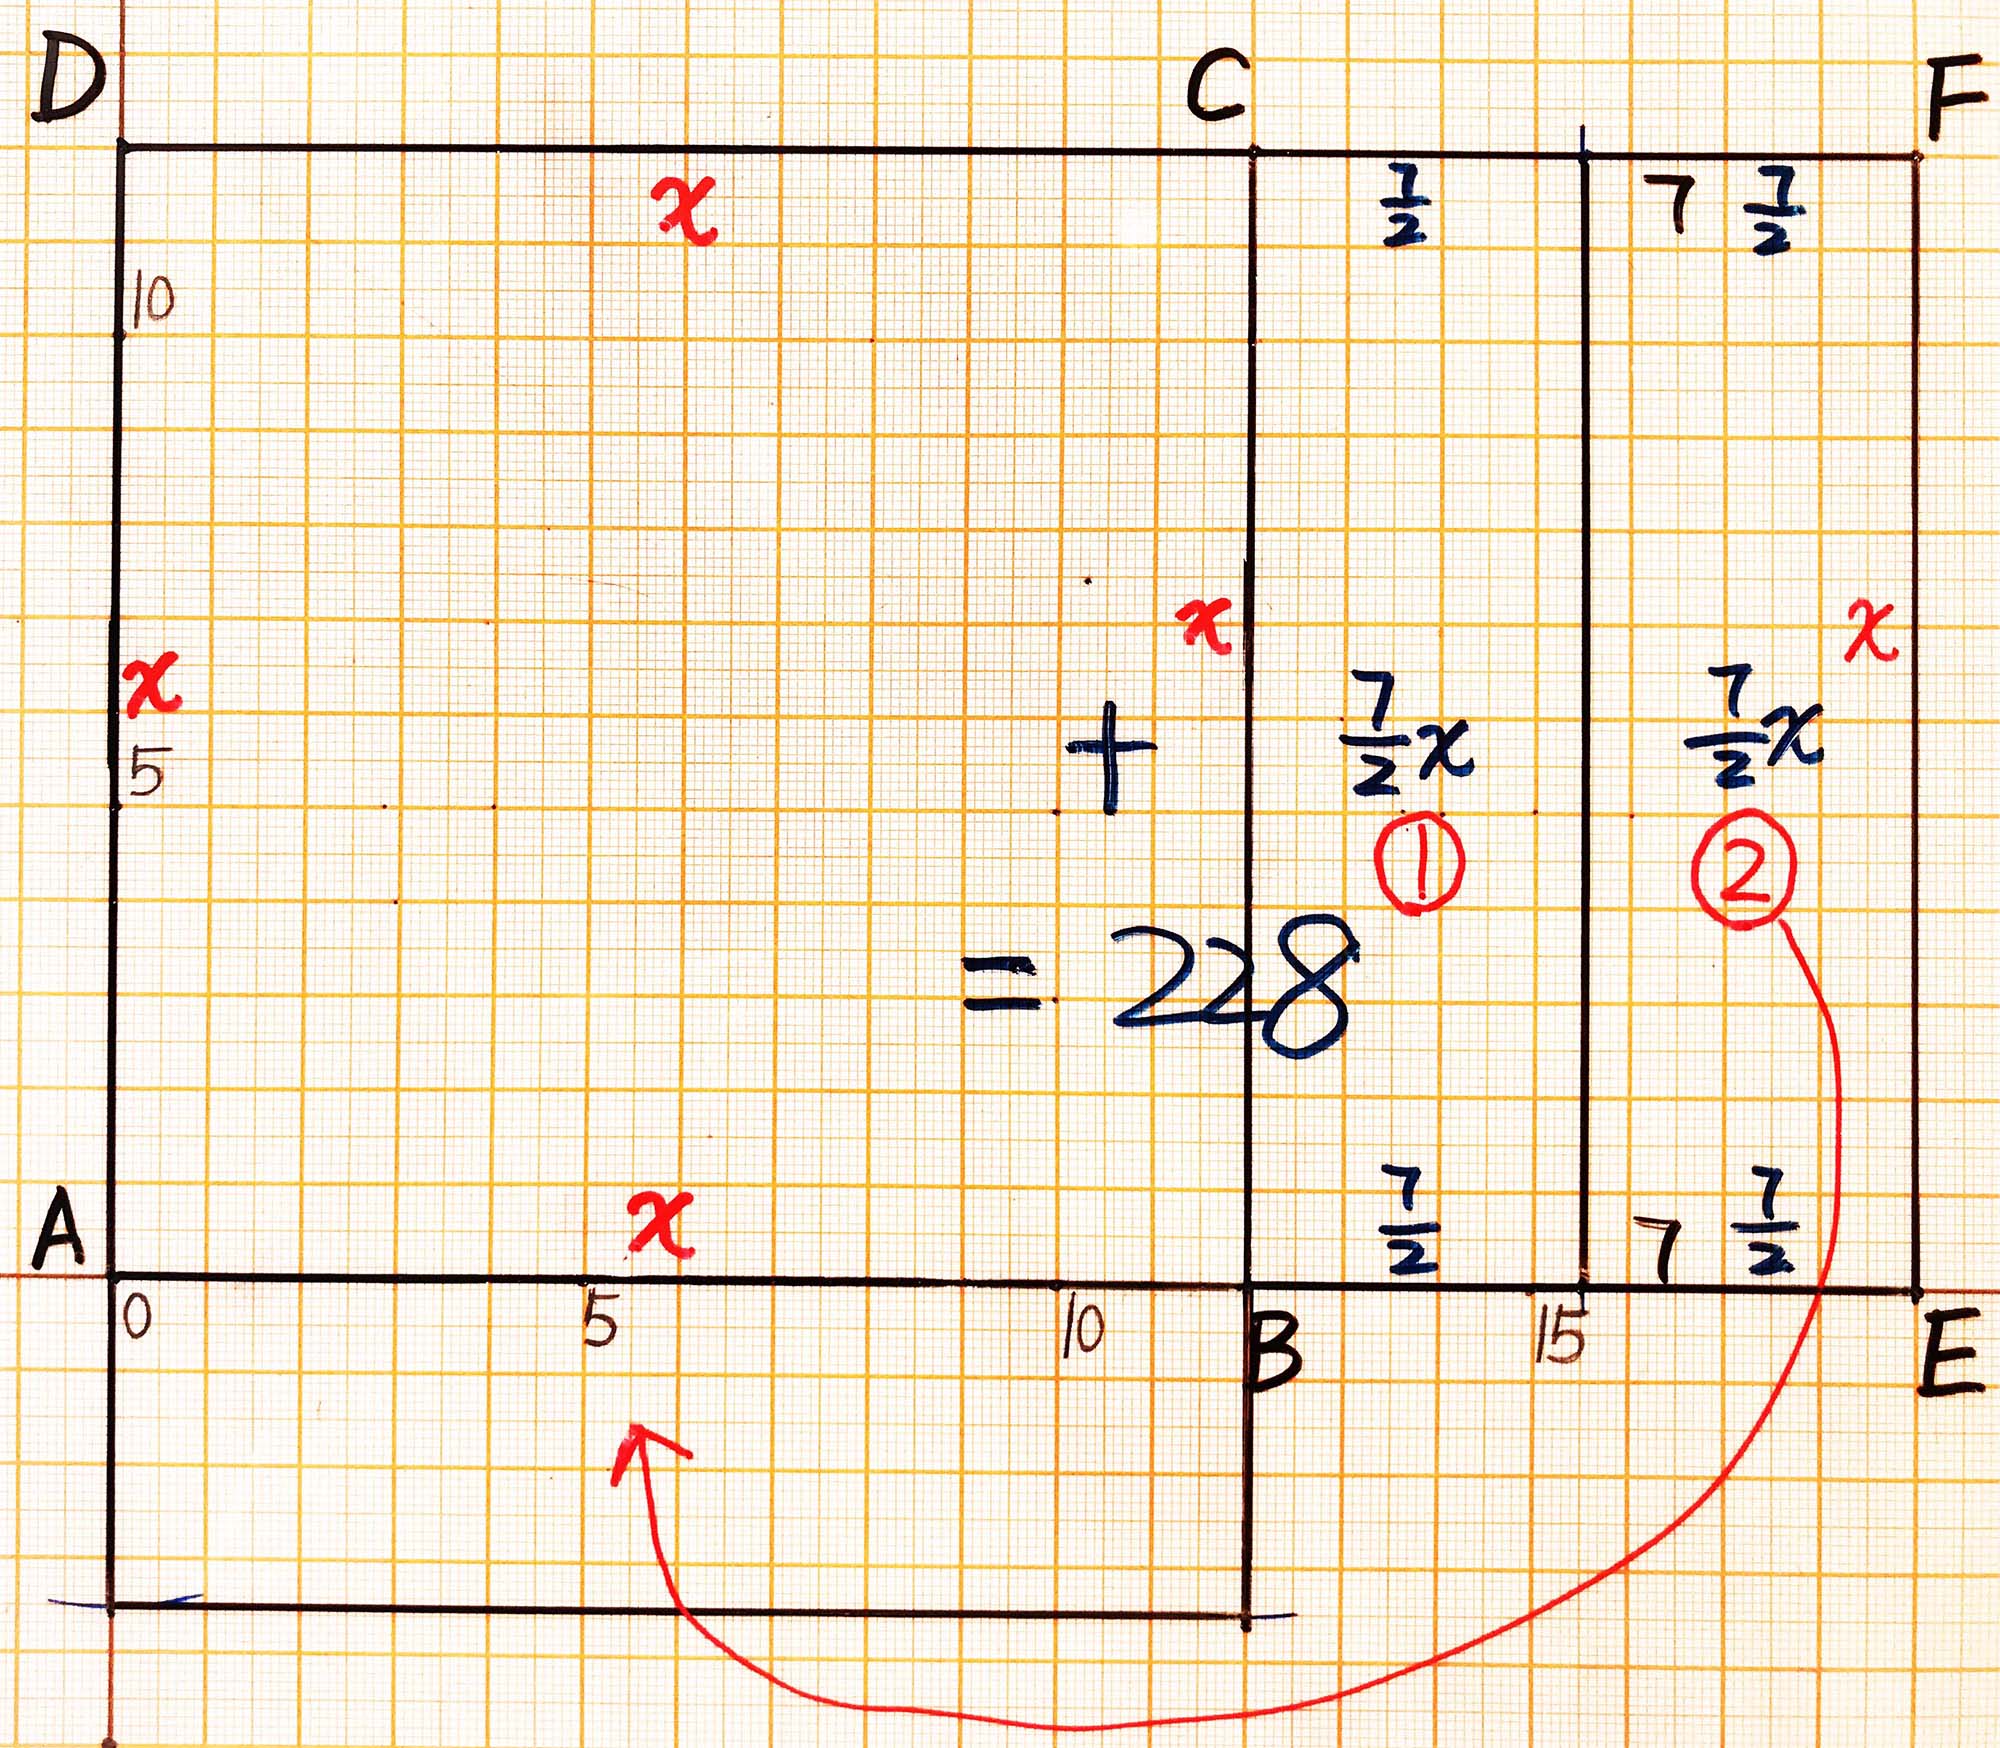 D C F
x 7/2 7 7/2
10
x x
x + 7/2 x 7/2 x
5
① ②
= 228
A x 7/2 7 7/2
0 5 10 B 15 E